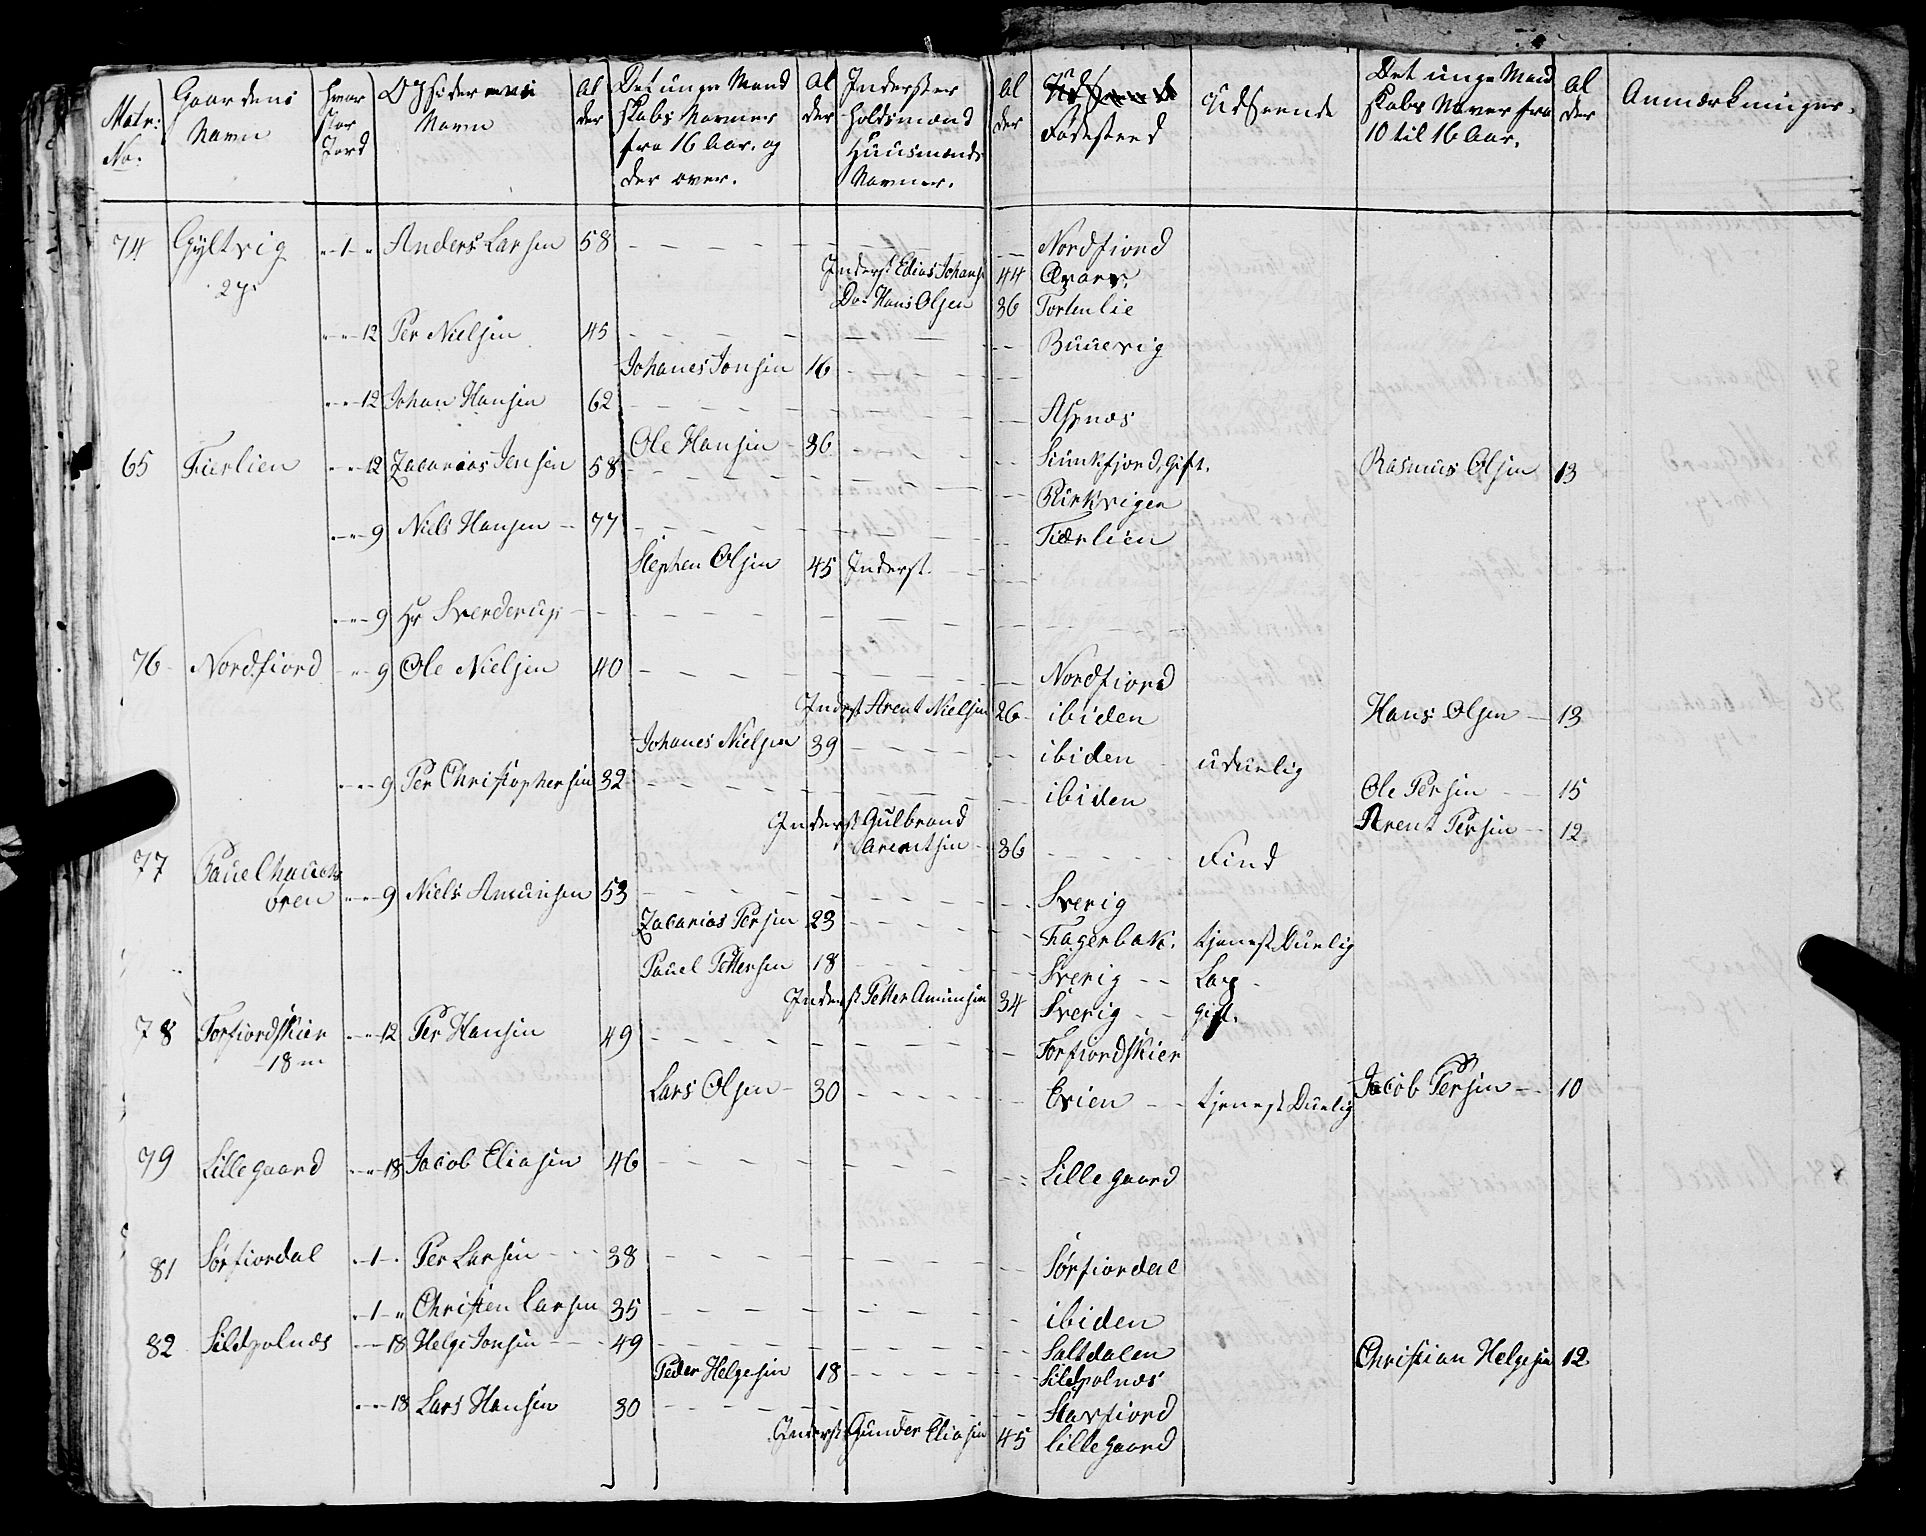 Matr: No. | Gaardens Navn | Hvor stor Jord | Opsidernes Navn | Al der | Det unge Mand skabs Navner fra 16 Aar. og der over. | Al der | Inderster Holdsmænd Huusmænds Navner. | Al der | Fødested | Udseende | Det unge Mand skabs Navner fra 10 til 16 Aar. | Al der | Anmærkninger.
74 Gyltvig „-1-„ Anders Larsen 58 Nordfiord
27. Inderst Elias Johans 44
Do. Hans Olsen 36 Torkenlie
„-„-12 Per Nielsen 45 Buuevig
Johanes Jonsen 16
„-„-12 Johan Hansen 62 Aspnæs
Ole Hansen 36 Gift.
65 Fierlien „-„-12 Zacarias Jensen 58 Kirkvigen Rasmus Olsen 13
„-„-9 Niels Hansen 77 Fiærlien
Stephen Olsen 45 Inderst.
„-„-9 Hr Sverderup
76 Nordfiord -„-9 Ole Nielsen 40 Nordfiord
Inderst Arent Nielsen 26 ibiden Hans Olsen 13
Johanes Nielsen 39 ibiden uduelig
„-„-9 Per Christophersen 32 ibiden Ole Persen 15
Inderst Gulbrand Arent Persen 12
Larentsen 36 Find
77
bren „-„-9 Niels Amunsen 53 Sverig
Zacarias Persen 23 Fagerbak. tjenest Duelig
Pauel Pettersen 18 Sverig Lap
Inderst Petter Amunsen 34 Sverig gift.
78 Torfiordskier „-„-12 Per Hansen 49 Torfiordskier
18 m
Lars Olsen 30 Evien tjenest Duelig Jacob Persen 10
79 Lillegaard „-„-18 Jacob Eliasen 46 Lillegaard
81 Sørfiordal „-1-„ Per Larsen 38 Sørfiordal
„-1-„ Christen Larsen 35 ibiden
82 Sildpolnæs „-„-18 Helge Jonsen 49 Saltdalen Christian Helgesen 12
Peder Helgesen 18 Sildpolnæs
„-„-18 Lars Hansen 30
Inderst Gunder Eliasen 45 Lillegaard